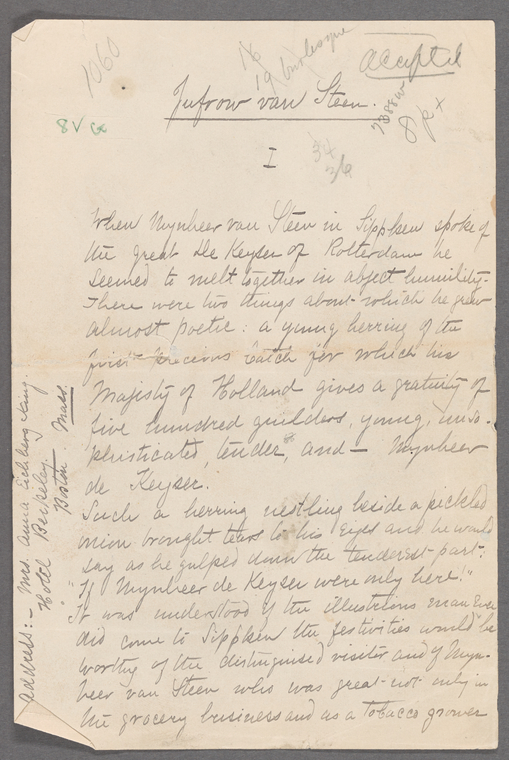 1060
18
19 burlesque
accepted
Jufrow van Steen.
8 V G
I
34
3/6
When Mynheer van Steen in Sippken spoke of
the great De Keyser of Rotterdam he
seemed to melt together in abject humility.
There were two things about which he grew
almost poetic: a young herring of the
first precious catch for which his
Majesty of Holland gives a gratuity of
five hundred guilders, young, unso-
phisticated, tender, and — Mynheer
de Keyser.
Such a herring nestling beside a pickled
onion brought tears to his eyes and he would
say as he gulped down the tenderest part:
"If Mynheer de Keyser were only here!"
It was understood if the illustrious man ever
did come to Sippken the festivities would be
worthy of the distinguised visiter and of Myn-
heer van Steen who was great not only in
the grocery business and as a tobacco grower
address: Mrs Anna Eichberg King.
Hotel Berkeley
Boston. Mass.